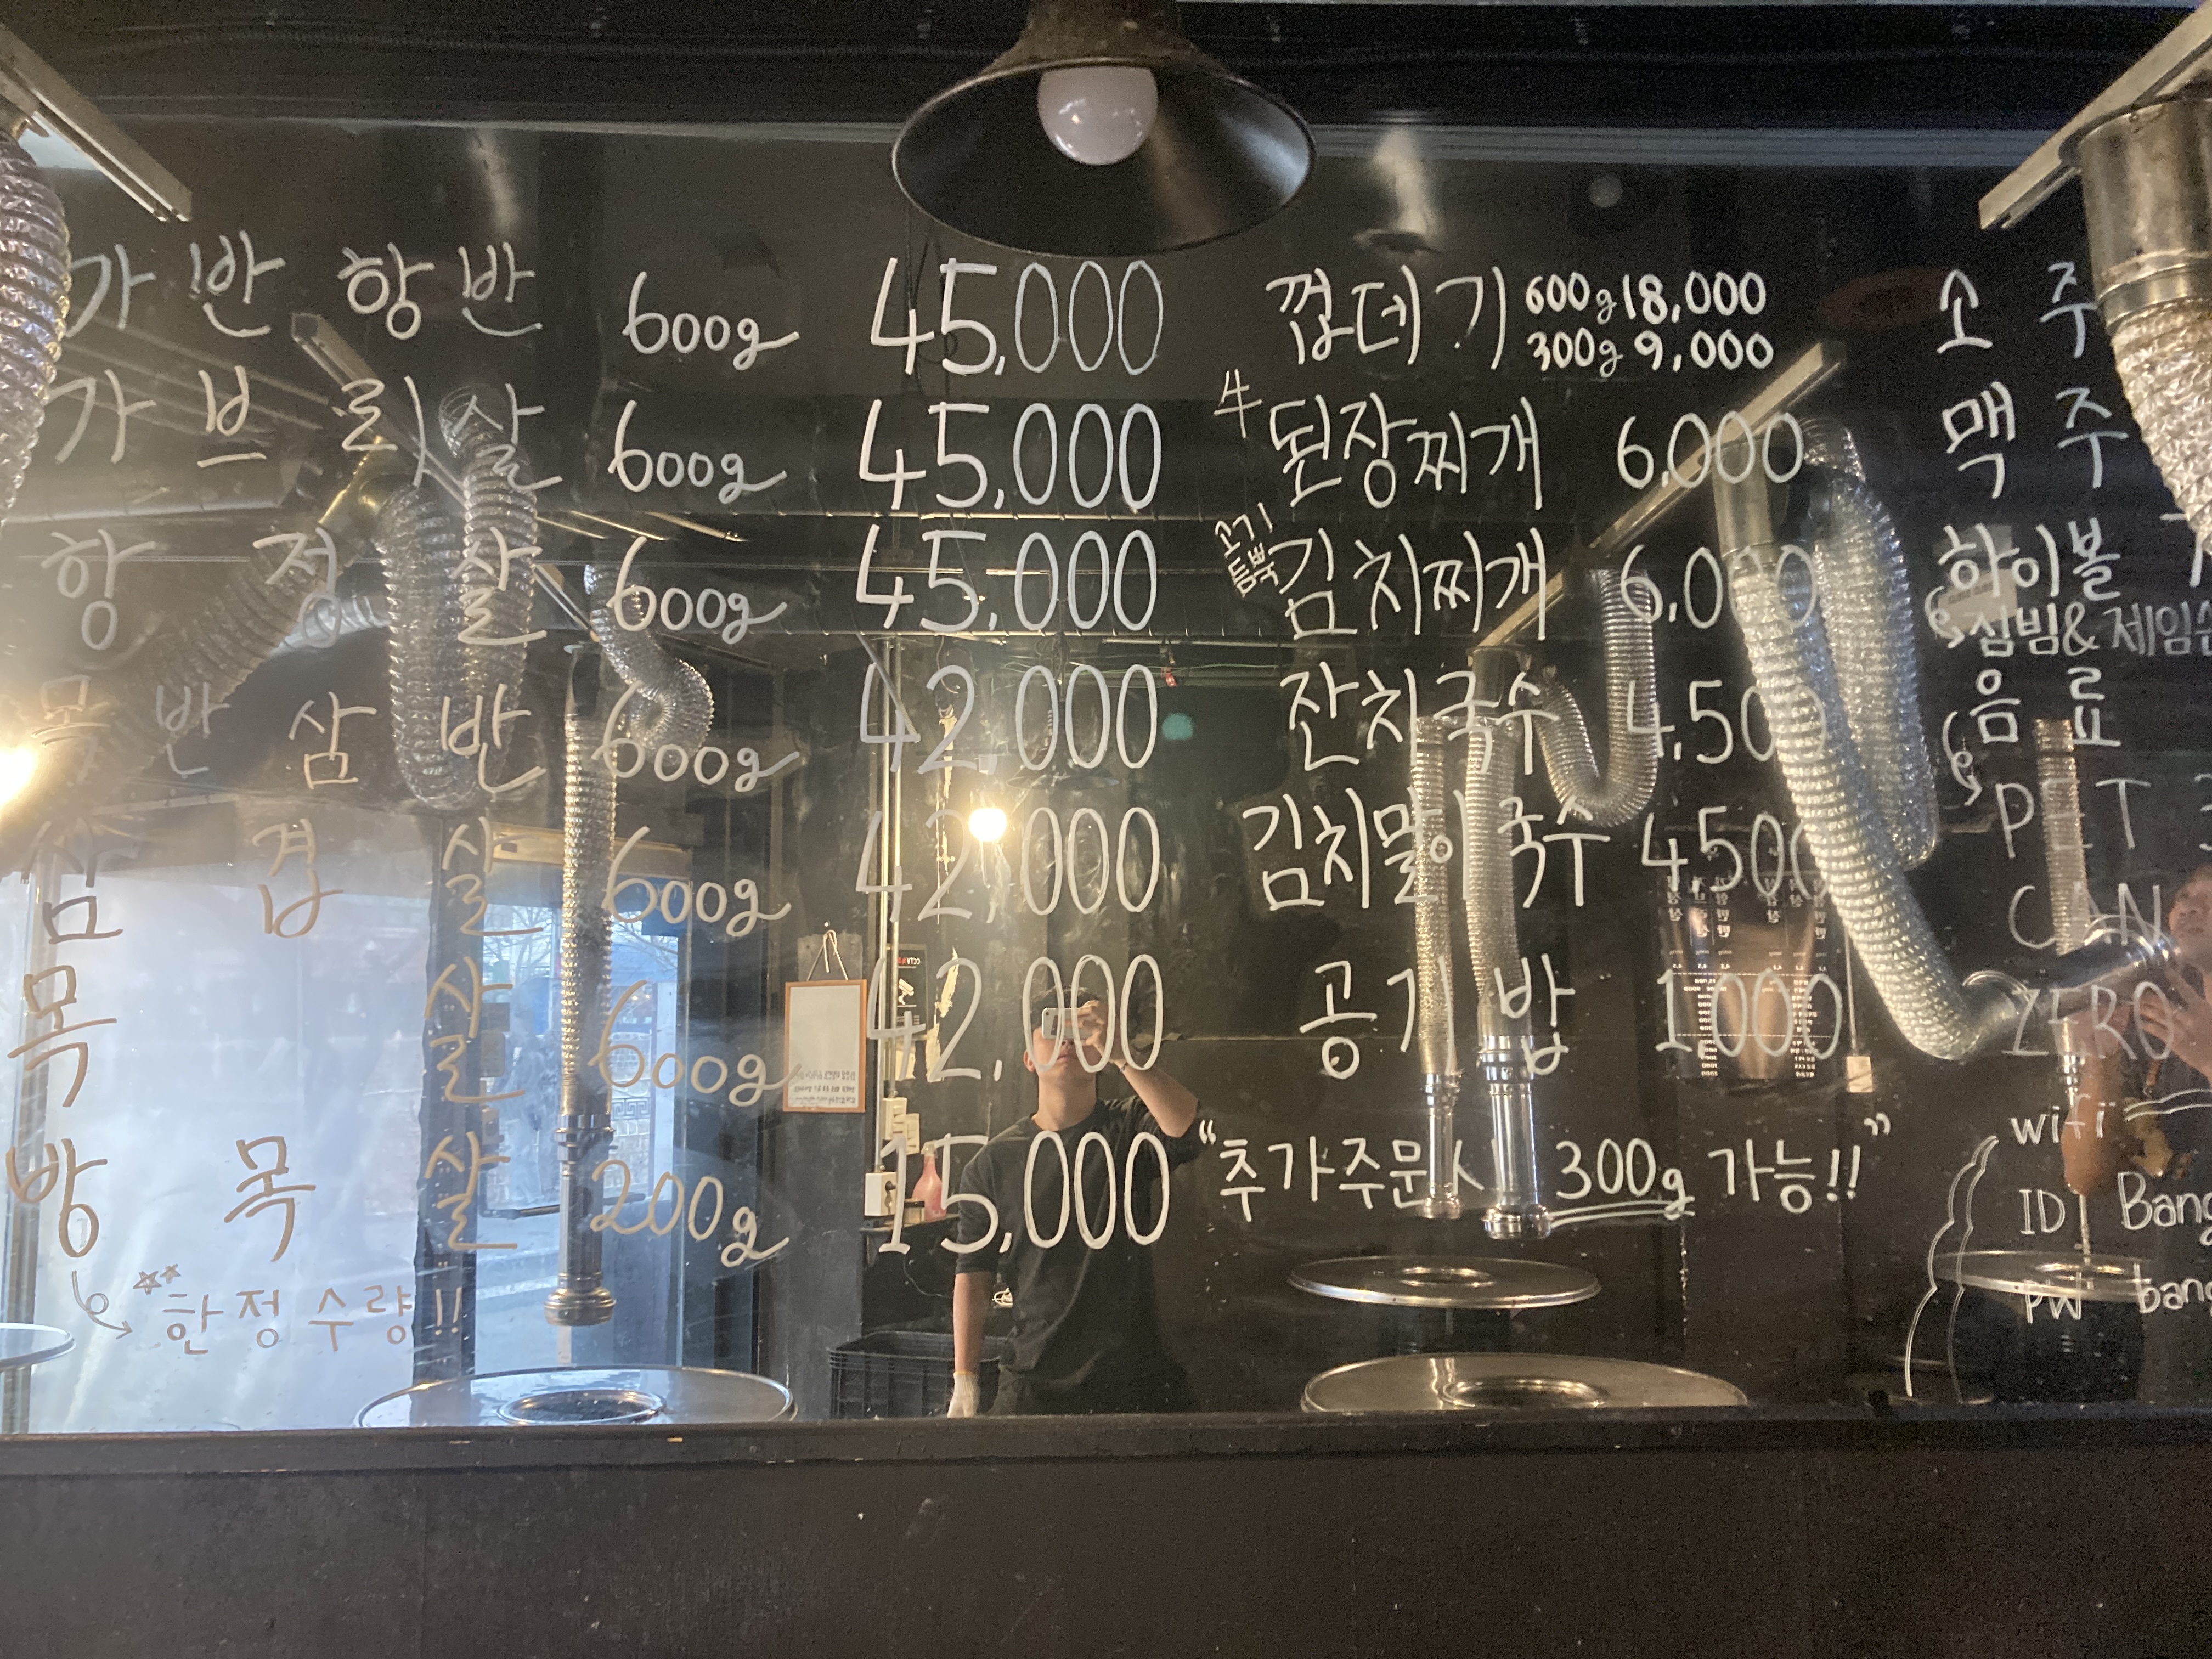 가반항반 600g 45,000
가브리살 600g 45,000
항정살 600g 45,000
목반삼반 600g 42,000
삼겹살 600g 42,000
목살 600g 42,000
방목살 200g 15,000
한정수량!!
껍데기 600g 18,000
300g 9,000
牛 된장찌개 6,000
고기듬뿍 김치찌개 6,000
잔치국수 4,500
김치말이국수 4500
공기밥 1000
"추가주문시 300g 가능!!"
소주
맥주
하이볼
짐빔&제임슨
음료
PET
CAN
ZERO
wifi
ID Bang
PW bang